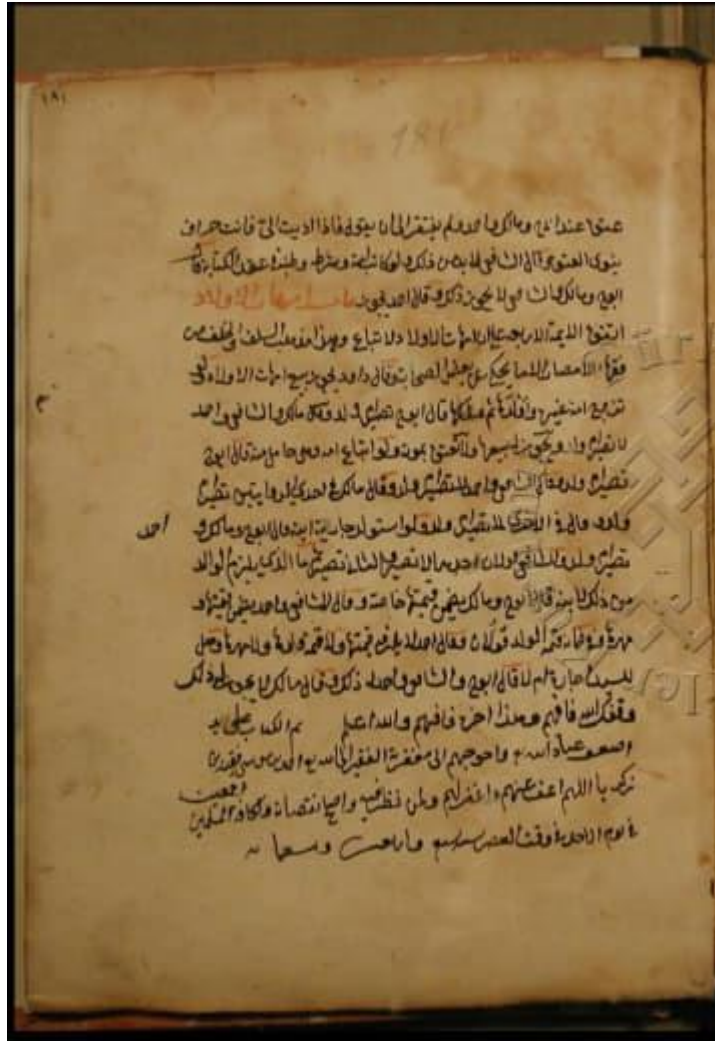 ١٨١
181
عتق عند ابي ح ومالك واحمد ولم يفتقر الى ان يقول فاذا اديت الي فانت حر او
ينوي العتق وقال الشافعي لا بد من ذلك ولو كاتب امة وشرط وطئها في عقد الكتابة قال
ابو ح ومالك والشافعي لا يجوز ذلك وقال احمد يجوز باب امهات الاولاد
اتفق الايمة الاربعة على ان امهات الاولاد لا تباع وهذا مذهب السلف والخلف من
فقهاء الامصار الا ما يحكى عن بعض الصحابة وقال داود يجوز بيع امهات الاولاد ولو
تزوج امة غيره واولدها ثم ملكها قال ابو ح تصير ام ولد وقال مالك والشافعي واحمد
لا تصير ام ولد ويجوز له بيعها ولا تعتق بموته ولو ابتاع امة وهي حامل منه قال ابو ح
تصير ام ولد وقال الشافعي واحمد لا تصير ام ولد وقال مالك في احدى الروايتين تصير ام
ولد وقال في الاخرى لا تصير ام ولد ولو استولد جارية ابنه قال ابو ح ومالك و
احمد
تصير ام ولد وللشافعي قولان احدهما لا تصير والثاني تصير ما الذي يلزم الوالد
من ذلك لابنه قال ابو ح ومالك يضمن قيمتها خاصة وقال الشافعي يضمن قيمتها و
مهرها وفي ضمان قيمة الولد قولان وقال احمد لا يلزمه قيمتها ولا قيمة ولدها ولا مهرها وهل
للسيد اجارة ام ولد قال ابو ح والشافعي واحمد له ذلك وقال مالك لا يجوز له ذلك
وفقك الله فافهم وهذا اخره فافهم والله اعلم تم الكتاب على يد
اضعف عباد الله واحوجهم الى مغفرة الفقير الى الله
اللهم اعف عنهم واغفر لهم ولمن نظر فيه واصلح نقصانه ولكافة المسلمين
اجمعين
في يوم الاحد في وقت العصر سنه